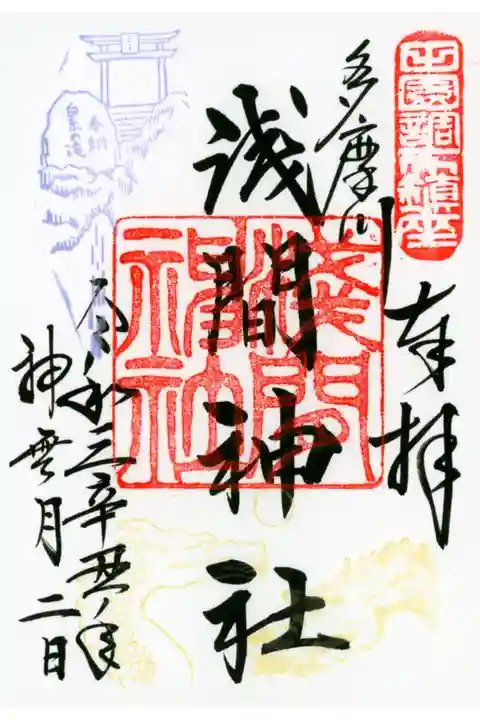 田園調布鎮座
奉拝
多摩川
浅間神社
淺間
神社
令和三辛丑ノ年
神無月二日
奉納